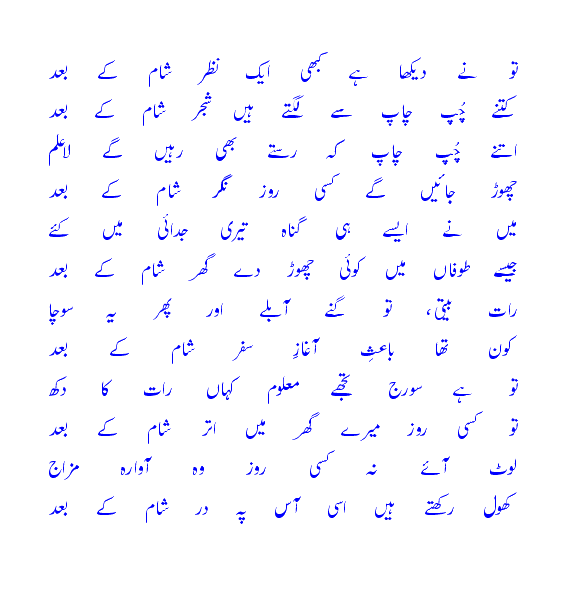 تو نے دیکھا ہے کبھی ایک نظر شام کے بعد
کتنے چُپ چاپ سے لگتے ہیں شجر شام کے بعد
اتنے چُپ چاپ کہ رستے بھی رہیں گے لاعلم
چھوڑ جائیں گے کسی روز نگر شام کے بعد
میں نے ایسے ہی گناہ تیری جدائی میں کئے
جیسے طوفاں میں کوئی چھوڑ دے گھر شام کے بعد
رات بیتی، تو گنے آبلے اور پھر یہ سوچا
کون تھا باعثِ آغازِ سفر شام کے بعد
تو ہے سورج تجھے معلوم کہاں رات کا دکھ
تو کسی روز میرے گھر میں اتر شام کے بعد
لوٹ آئے نہ کسی روز وہ آوارہ مزاج
کھول رکھتے ہیں اسی آس پہ در شام کے بعد